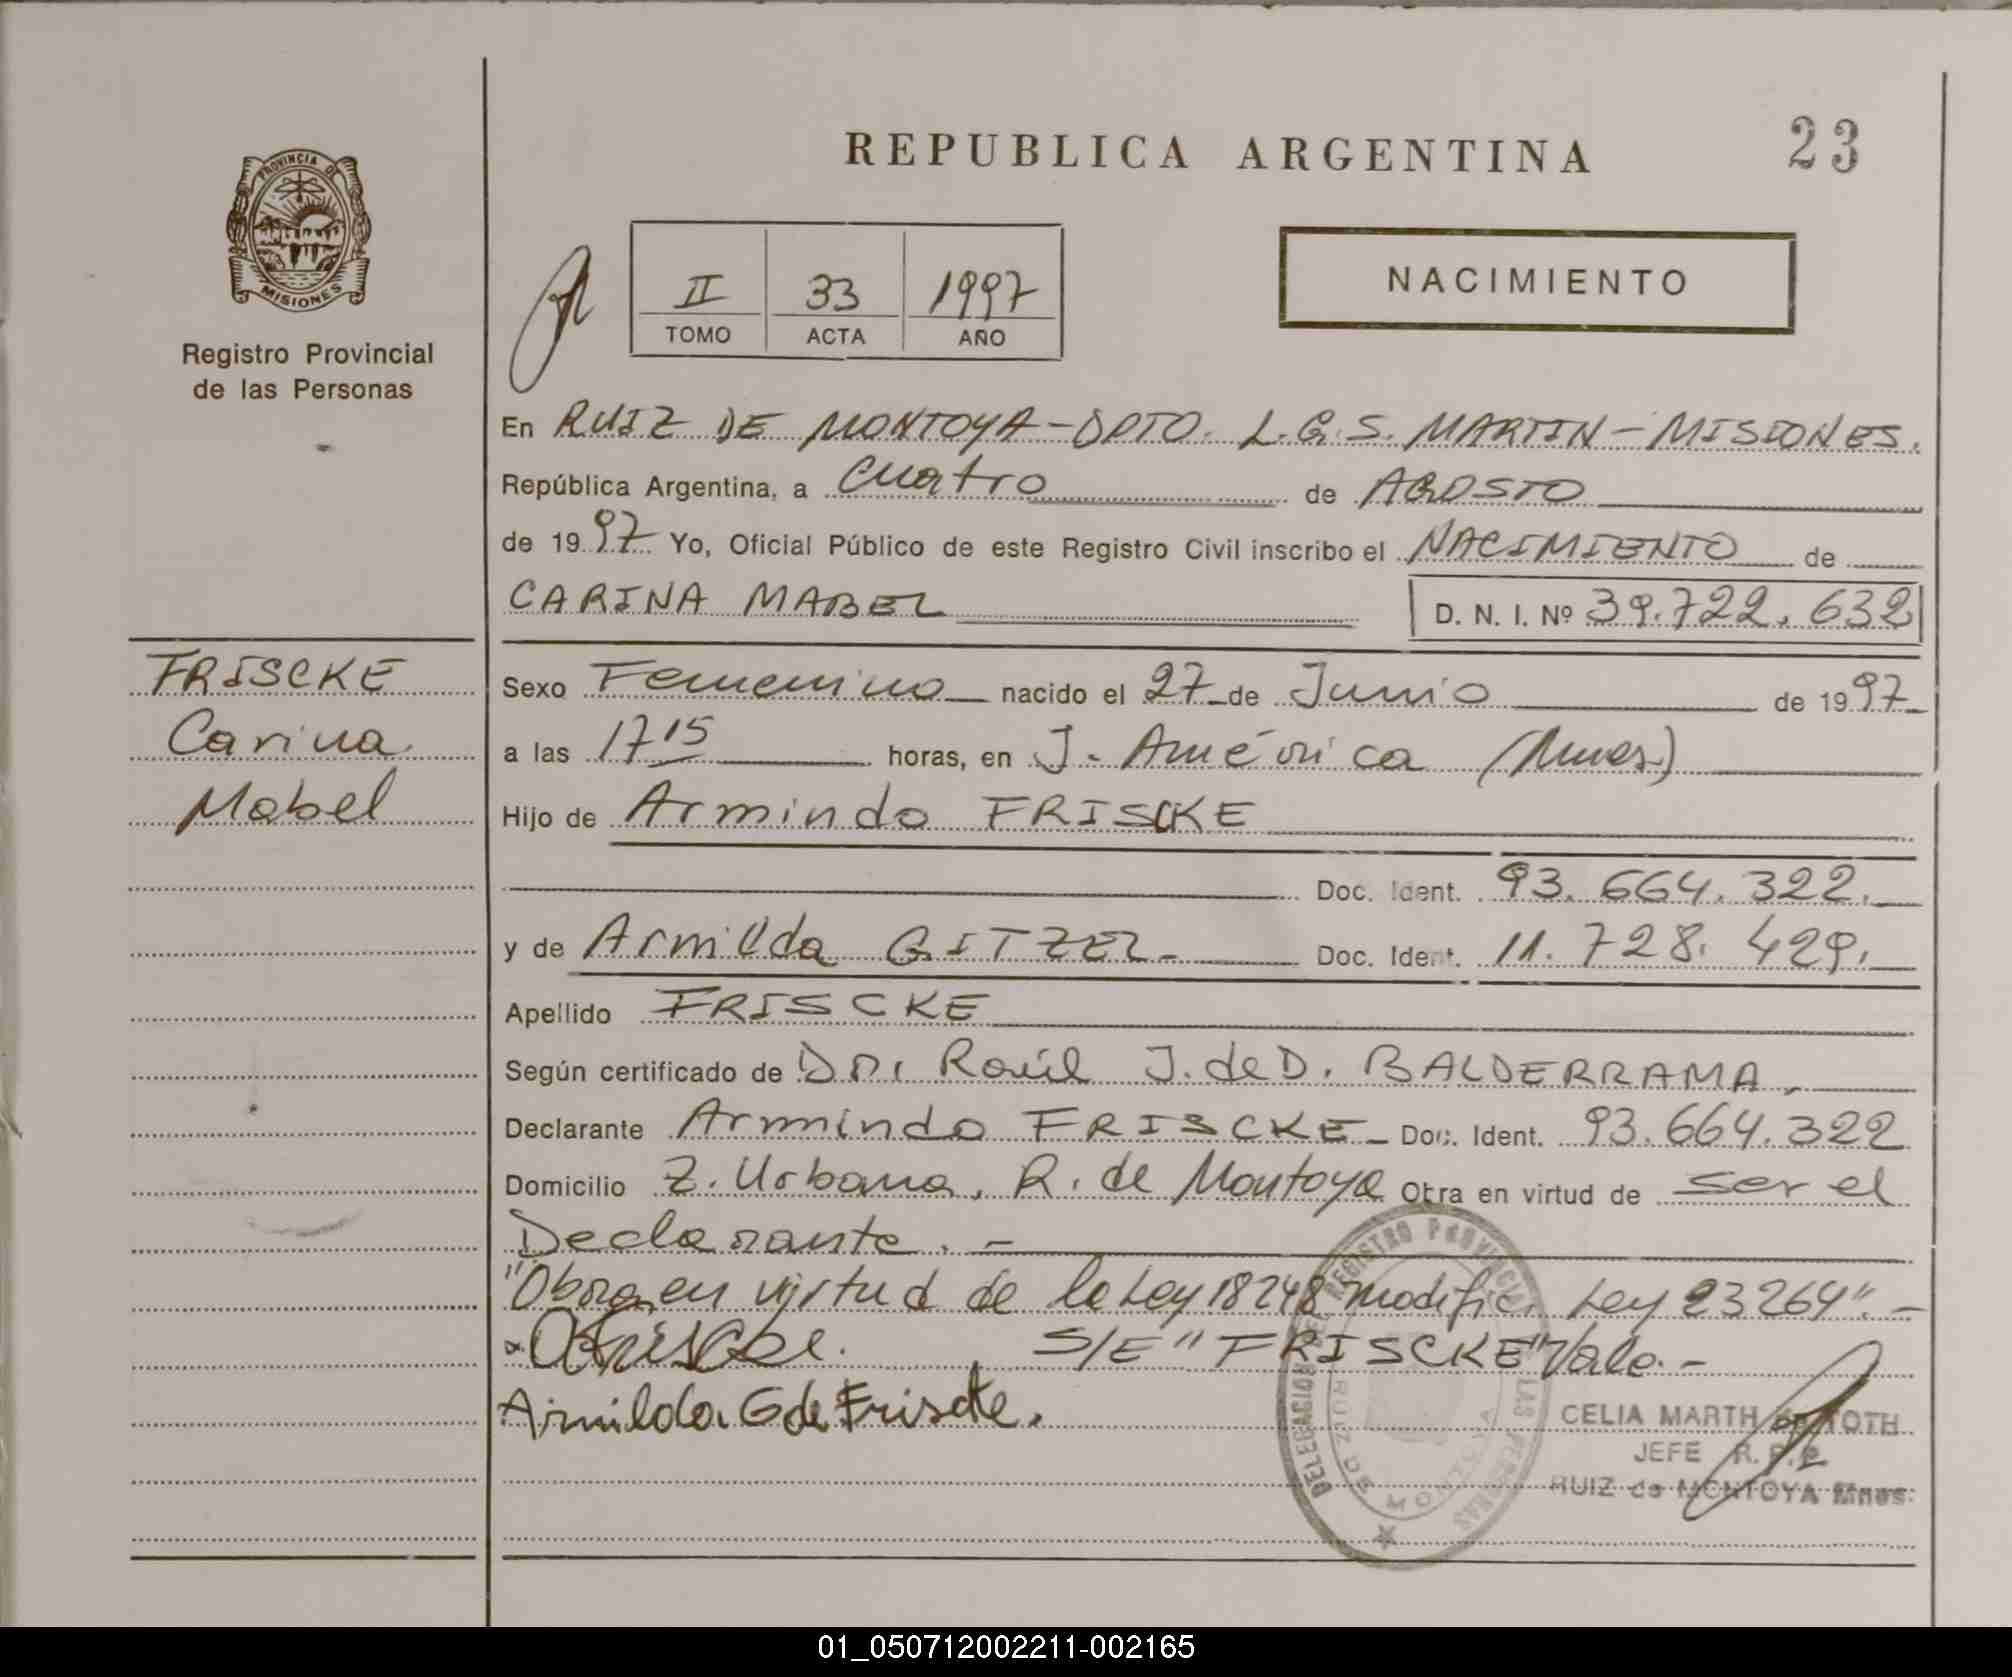 REPUBLICA ARGENTINA
23
PROVINCIA DE
MISIONES
Registro Provincial
de las Personas
II 33 1997
TOMO ACTA AÑO
NACIMIENTO
En RUIZ DE MONTOYA - DPTO. L.G.S. MARTIN - MISIONES.
República Argentina, a cuatro de AGOSTO
de 1997 Yo, Oficial Público de este Registro Civil inscribo el NACIMIENTO de
CARINA MABEL D. N. I. Nº 39.722.632
FRISCKE
Carina
Mabel
Sexo Femenino nacido el 27 de Junio de 1997
a las 17 15 horas, en J. América (Mnes.)
Hijo de Armindo FRISCKE
Doc. Ident. 93.664.322.
y de Armilda GITZEL - Doc. Ident. 11.728.429.
Apellido FRISCKE
Según certificado de Dr. Raúl J. de D. BALDERRAMA.
Declarante Armindo FRISCKE - Doc. Ident. 93.664.322
Domicilio Z. Urbana, R. de Montoya Obra en virtud de ser el
Declarante. -
"Obra en virtud de la Ley 18248 modific. Ley 23264". -
S/E "FRISCKE" Vale. -
Armilda G de Friscke.
DELEGACION DEL REGISTRO PROVINCIAL DE LAS PERSONAS
RUIZ DE MONTOYA
CELIA MARTH de TOTH
JEFE R.P.P.
RUIZ de MONTOYA Mnes.
01_050712002211-002165